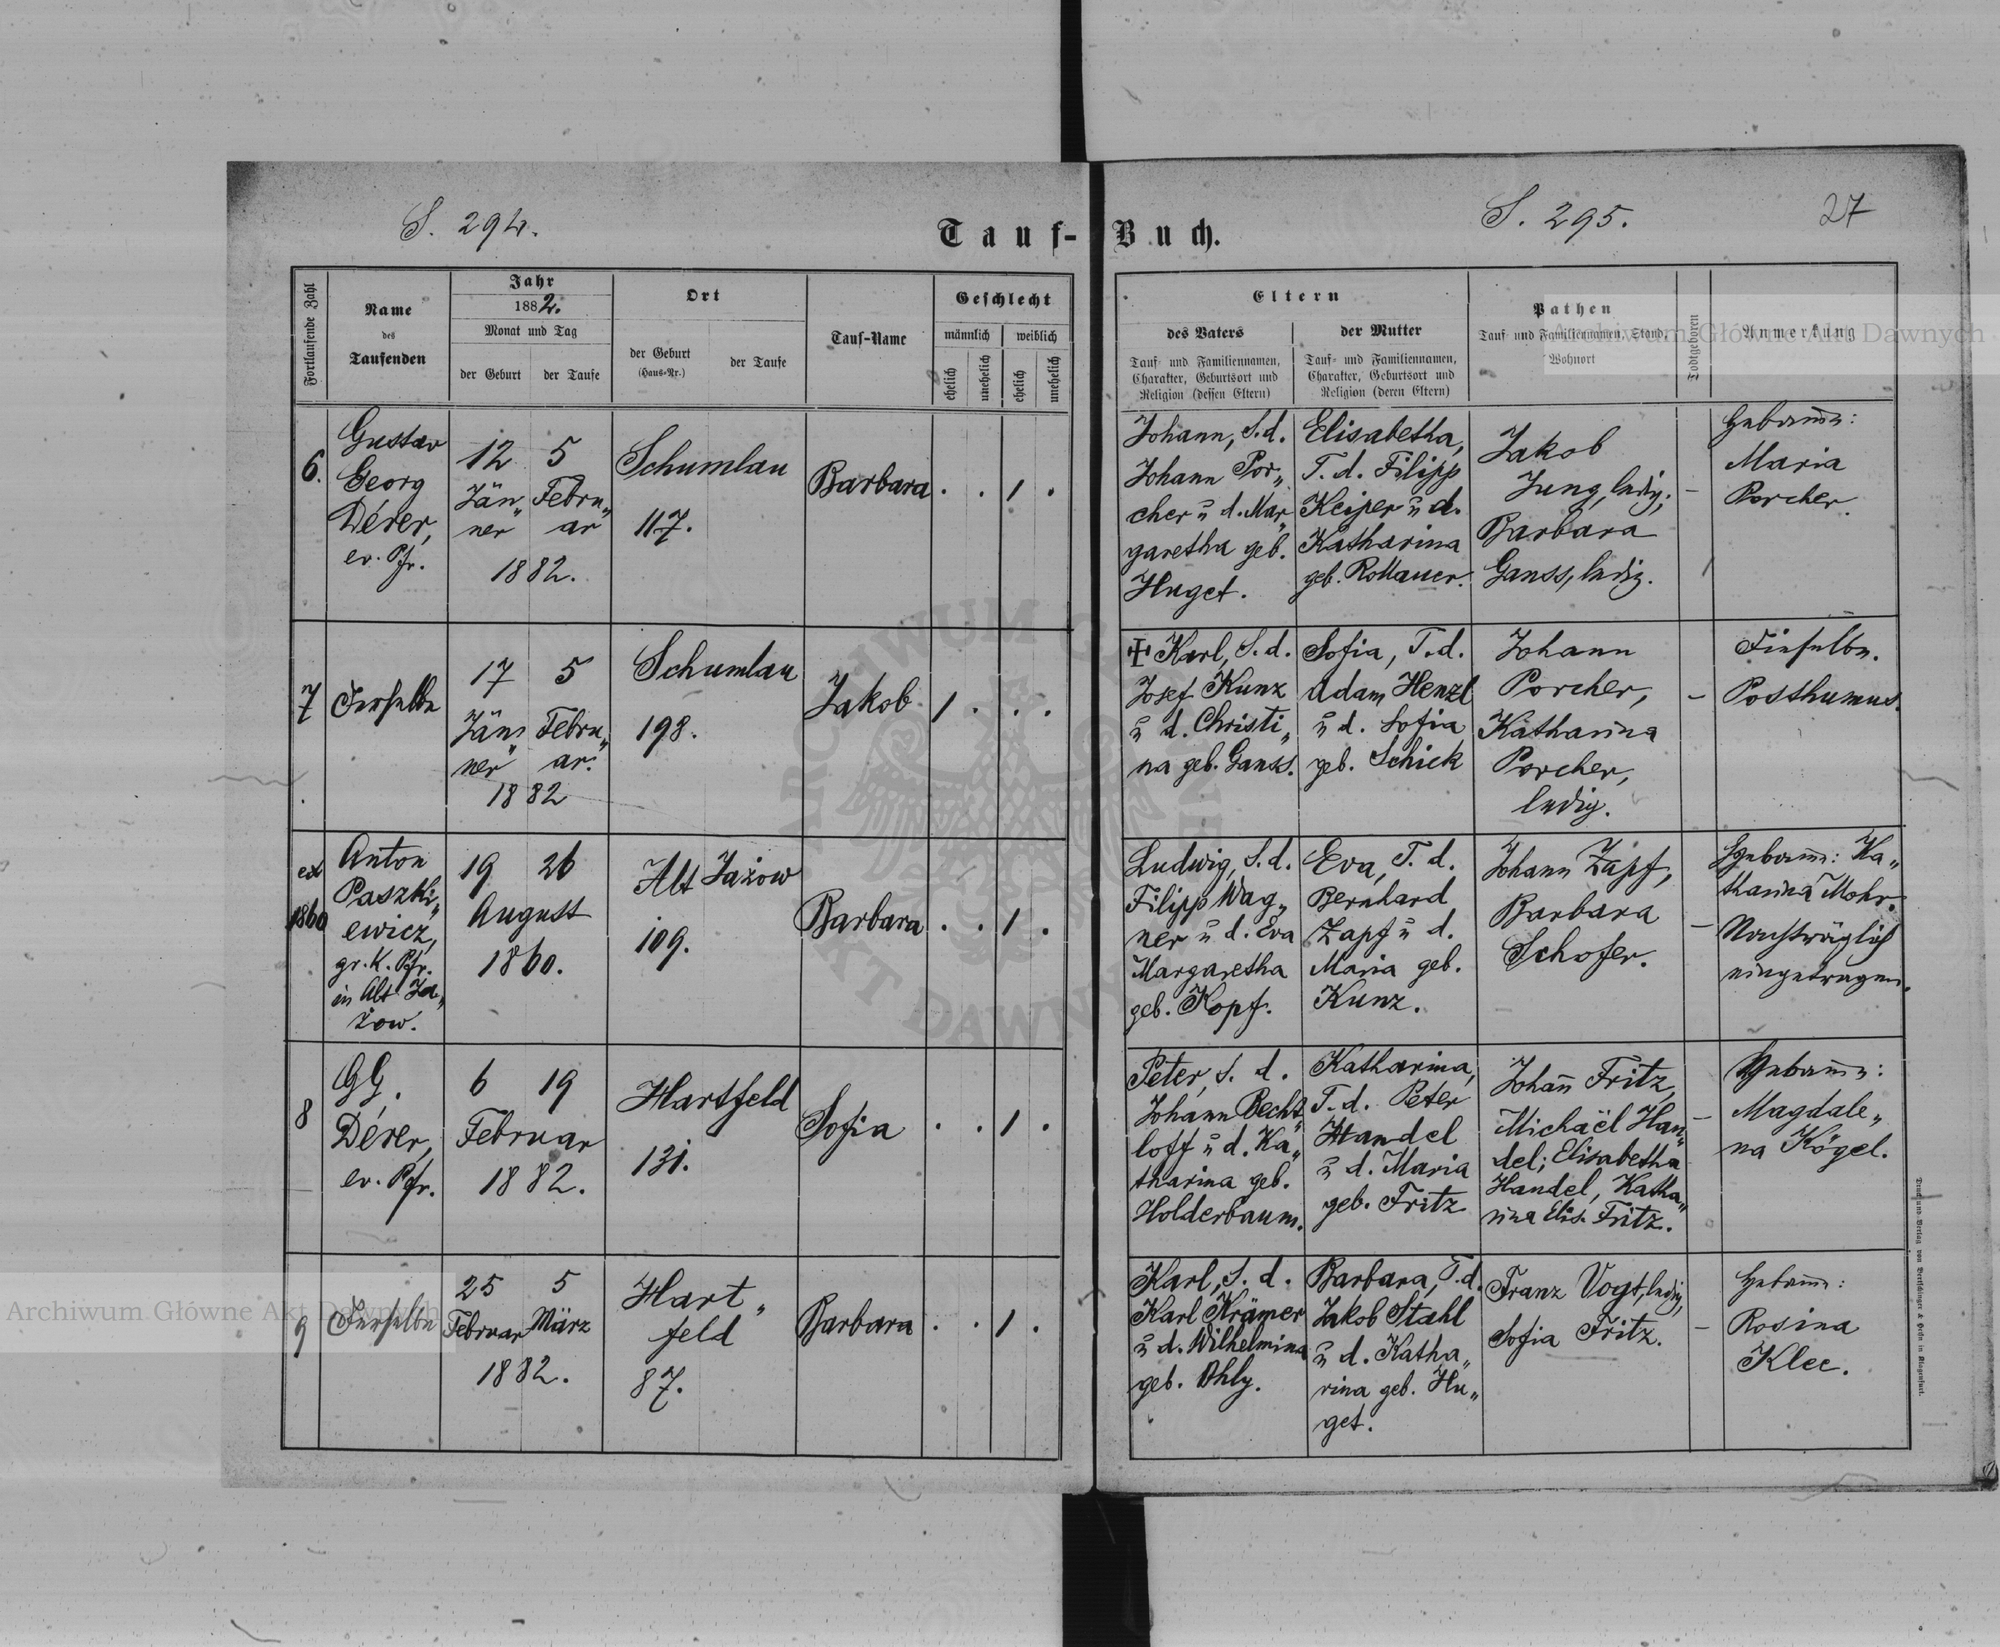 S. 294.
Tauf-Buch.
S. 295.
27
Fortlaufende Zahl
Name
des
Taufenden
Jahr
1882.
Monat und Tag
der Geburt
der Taufe
Ort
der Geburt
(Haus-Nr.)
der Taufe
Tauf-Name
Geschlecht
männlich
weiblich
ehelich
unehelich
ehelich
unehelich
Eltern
des Vaters
Tauf- und Familiennamen,
Charakter, Geburtsort und
Religion (dessen Eltern)
der Mutter
Tauf- und Familiennamen,
Charakter, Geburtsort und
Religion (deren Eltern)
Pathen
Tauf- und Familiennamen, Stand,
Wohnort
Todtgeboren
Anmerkung
6.
Gustav
Georg
Dérer,
ev. Pfr.
12 5
Jän„ Febru„
ner ar
1882.
Schumlau
117.
Barbara
. . 1 .
Johann, S. d.
Johann Por„
cher u d. Mar„
garetha geb.
Huget.
Elisabetha,
T. d. Filipp
Keiper u d.
Katharina
geb. Rollauer.
Jakob
Jung, ledig;
Barbara
Ganss, ledig.
–
Hebamme:
Maria
Porcher.
7
Derselbe
17 5
Jän„ Febru„
ner ar.
1882
Schumlau
198.
Jakob
1 . . .
✠ Karl, S. d.
Josef Kunz
u d. Christi„
na geb. Ganss.
Sofia, T. d.
Adam Henzl
u d. Sofia
geb. Schick
Johann
Porcher,
Katharina
Porcher,
ledig.
–
Dieselbe.
Posthumus.
ex
1860
Anton
Paszki„
ewicz,
gr. k. Pfr.
in Alt Ja„
żow.
19 26
August
1860.
Alt Jażow
109.
Barbara
. . 1 .
Ludwig, S. d.
Filipp Wag„
ner u d. Eva
Margaretha
geb. Kopf.
Eva, T. d.
Bernhard
Zapf u d.
Maria geb.
Kunz.
Johann Zapf,
Barbara
Schofer.
–
Hebamme: Ka„
tharina Mohr.
Nachträglich
eingetragen.
8
GG.
Dérer,
ev. Pfr.
6 19
Februar
1882.
Hartfeld
131.
Sofia
. . 1 .
Peter, S. d.
Johann Becht„
loff u d. Ka„
tharina geb.
Holderbaum.
Katharina,
T. d. Peter
Handel
u d. Maria
geb. Fritz
Johann Fritz,
Michaël Han„
del; Elisabetha
Handel, Katha„
rina Elis. Fritz.
–
Hebamme:
Magdale„
na Kögel.
9
Derselbe
25 5
Februar März
1882.
Hart„
feld
87.
Barbara
. . 1 .
Karl, S. d.
Karl Krämer
u d. Wilhelmina
geb. Ohly.
Barbara, T. d.
Jakob Stahl
u d. Katha„
rina geb. Hu„
get.
Franz Vogt, ledig,
Sofia Fritz.
–
Hebamme:
Rosina
Klee.
Archiwum Główne Akt Dawnych
Archiwum Główne Akt Dawnych